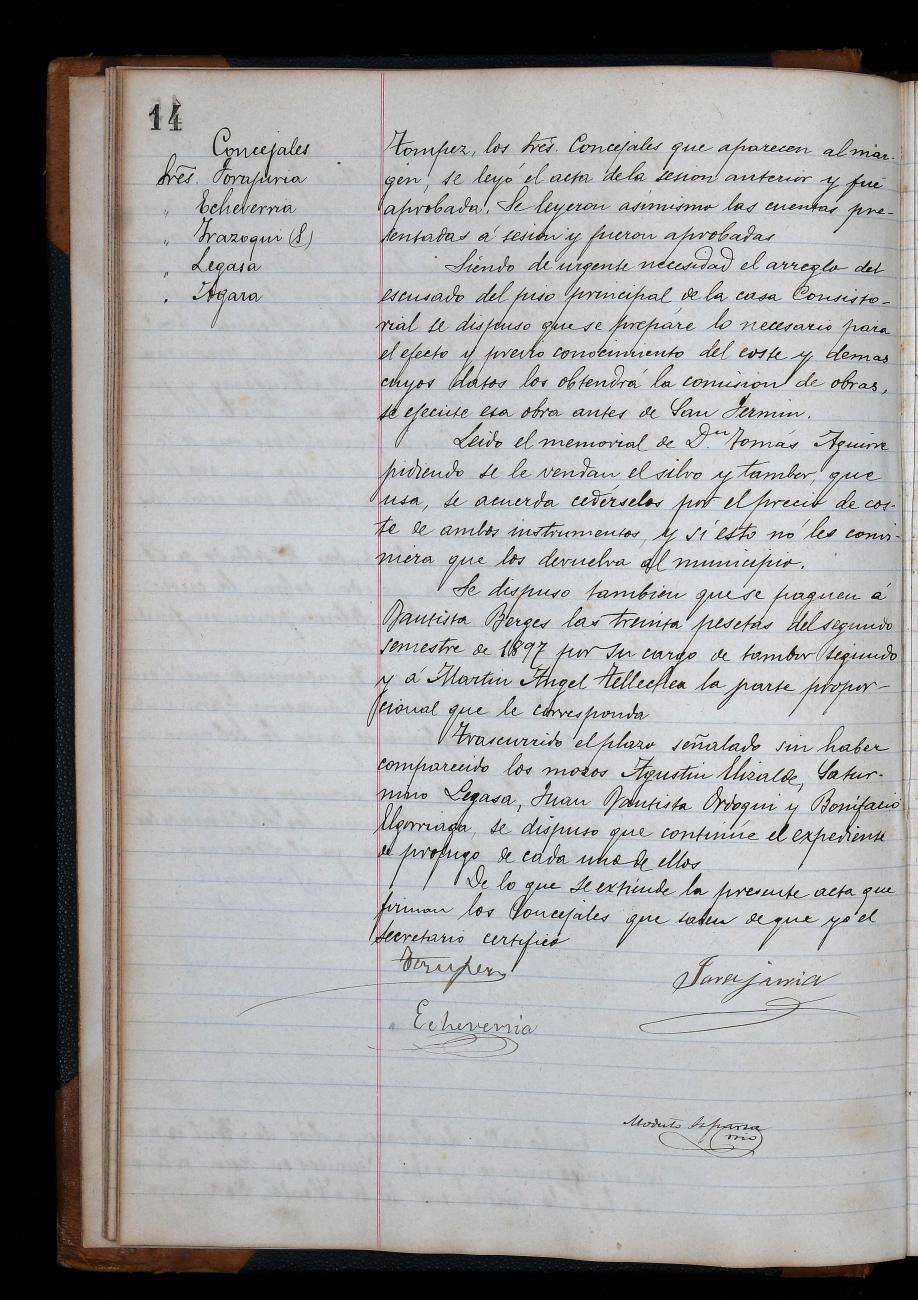 14
Concejales
Sres. Jorajuria
" Echeverria
" Irazoqui (S)
" Legasa
" Agara
Tompez, los Sres. Concejales que aparecen al mar-
gen, se leyó el acta de la sesion anterior y fué
aprobada. Se leyeron asimismo las cuentas pre-
sentadas á sesion y fueron aprobadas
Siendo de urgente necesidad el arreglo del
escusado del piso principal de la casa Consisto-
rial se dispuso que se prepare lo necesario para
el efecto y previo conocimiento del coste y demas
cuyos datos los obtendrá la comision de obras,
se ejecute esa obra antes de San Fermin.
Leido el memorial de Dn Tomás Aguirre
pidiendo se le vendan el silvo y tambor, que
usa, se acuerda cedérselos por el precio de cos-
te de ambos instrumentos, y si esto no les convi-
niera que los devuelva al municipio.
Se dispuso tambien que se paguen á
Bautista Berges las treinta pesetas del segundo
semestre de 1897 por su cargo de tambor segundo
y á Martin Angel Tellechea la parte propor-
cional que le corresponda
Trascurrido el plazo señalado sin haber
comparecido los mozos Agustin Elizalde, Satur-
nino Legasa, Juan Bautista Ordoqui y Bonifacio
Elgorriaga, se dispuso que continúe el expediente
de profugo de cada uno de ellos
De lo que se extiende la presente acta que
firman los Concejales que saben de que yo el
secretario certifico
Jorajuria
Echeverria
Modesto Esparza
srio